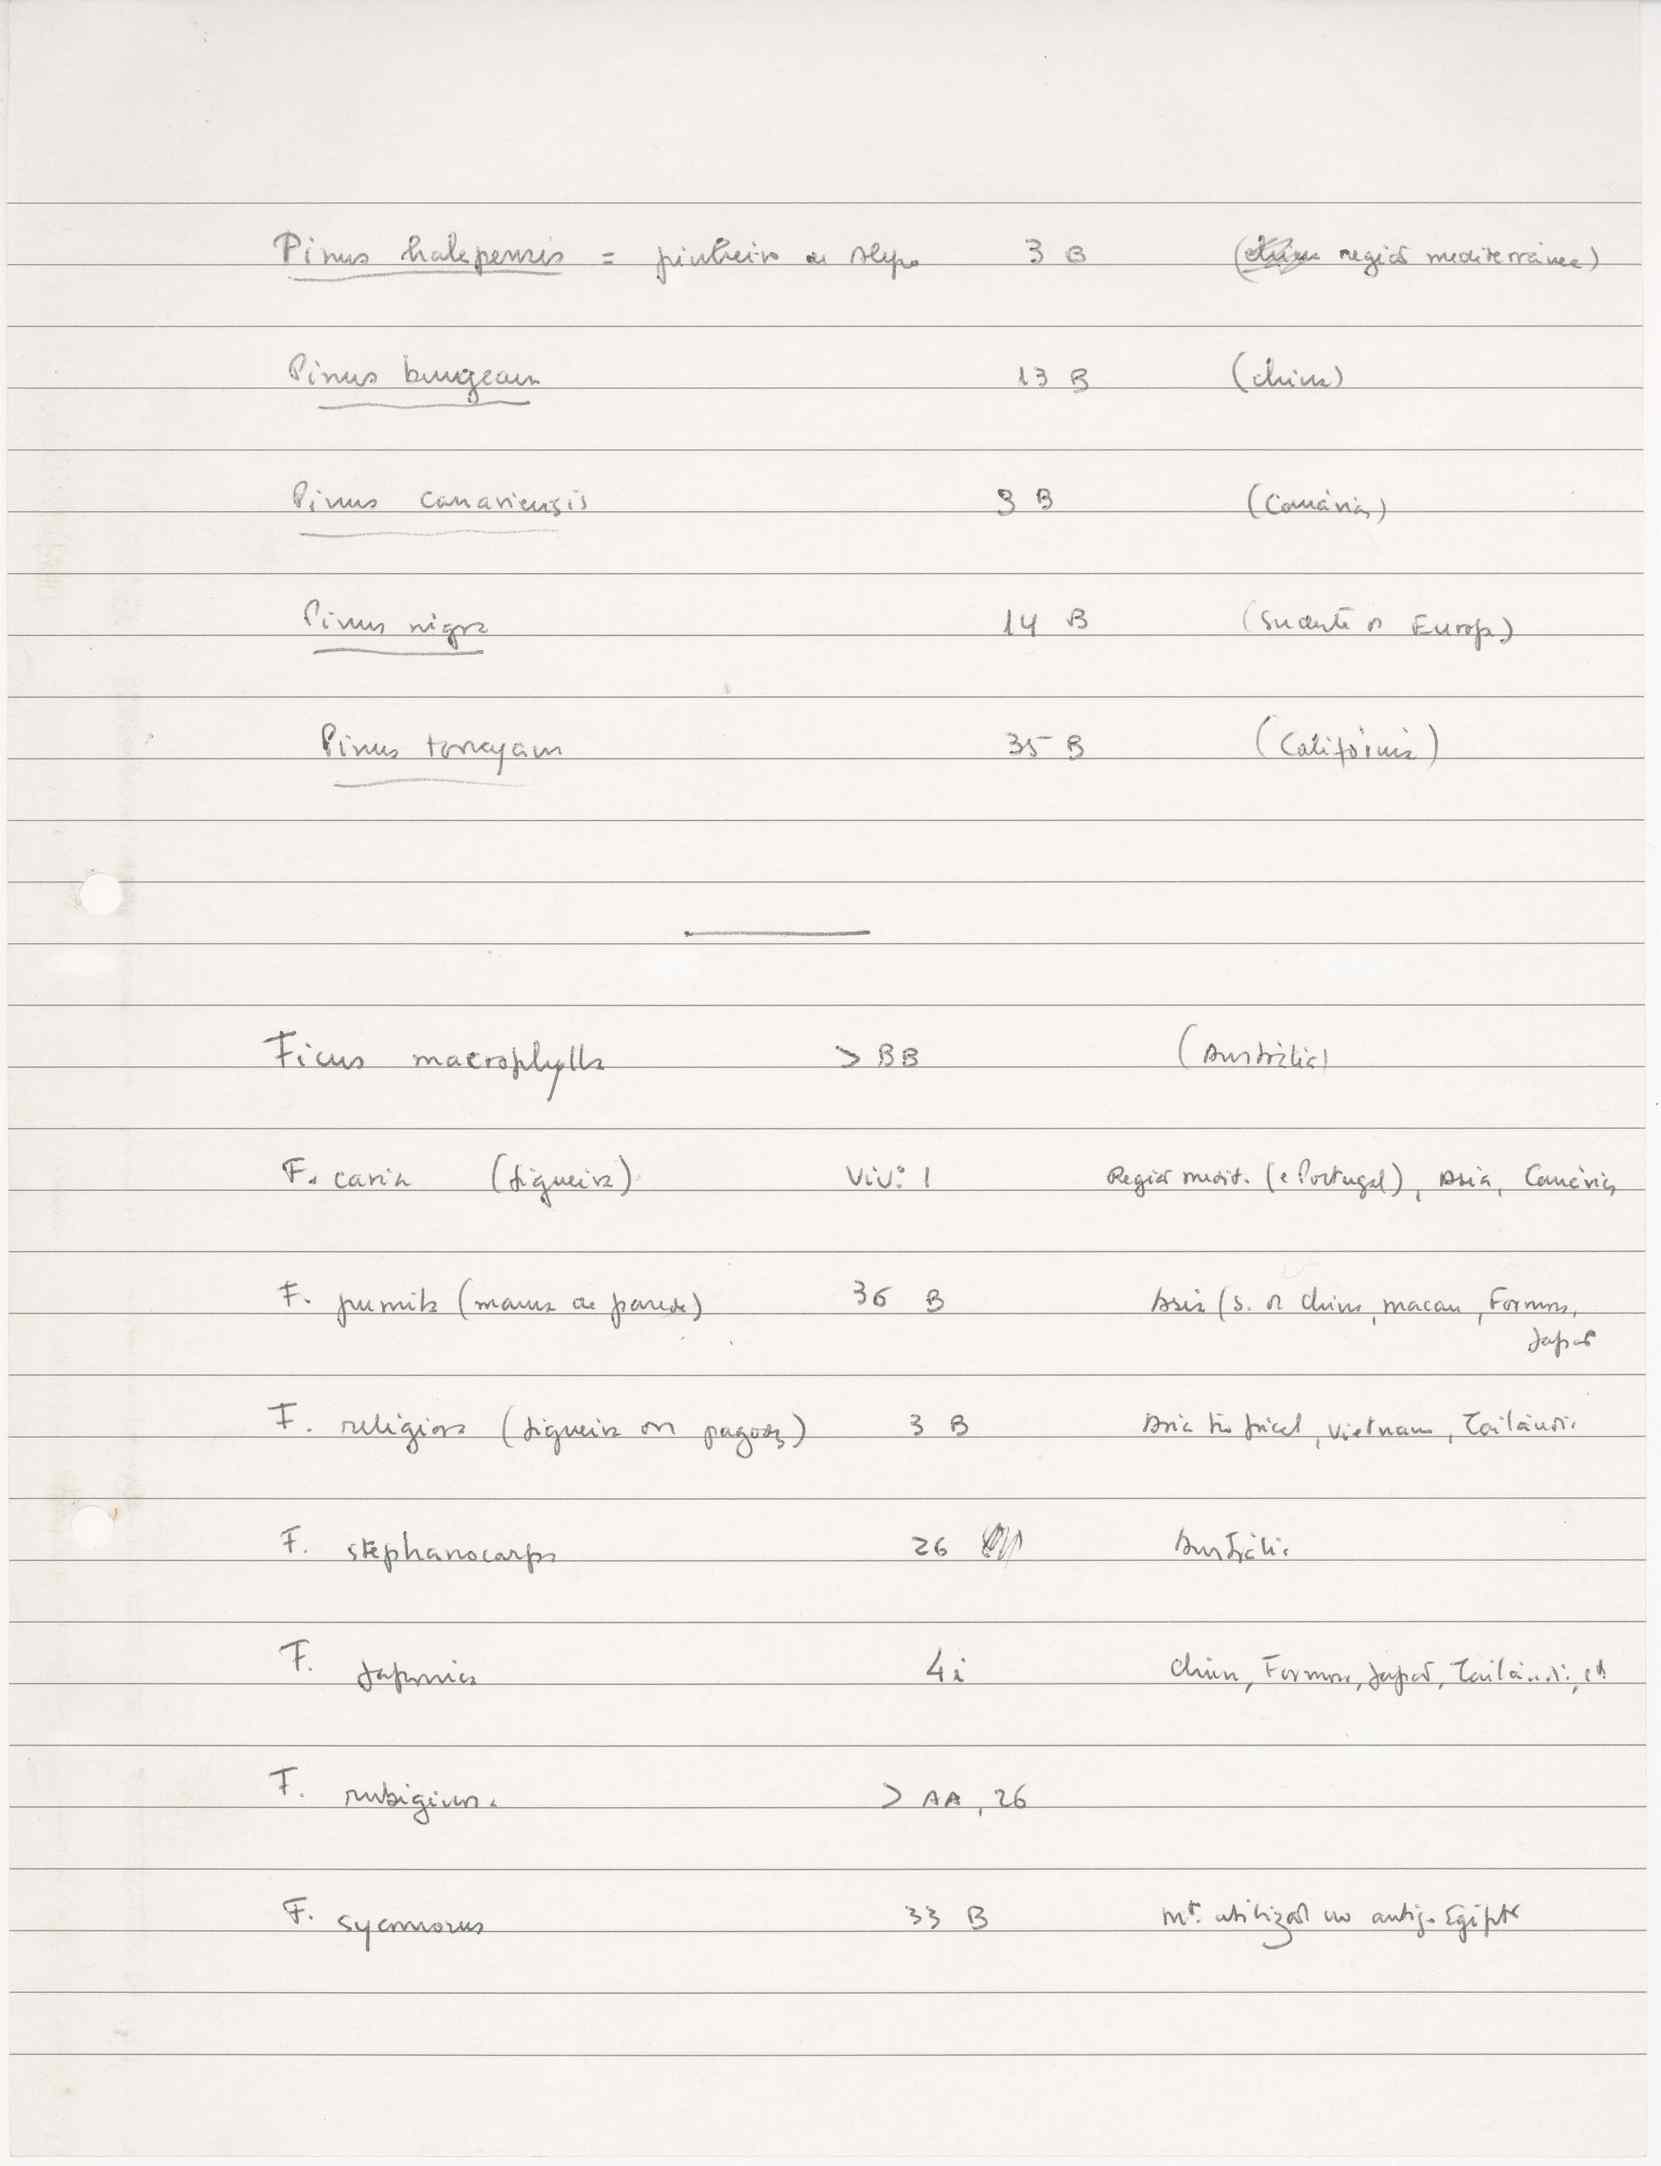 Pinus halepensis = pinheiro de Alepo 3 B (região mediterrânea)
Pinus bungeana 13 B (China)
Pinus canariensis 3 B (Canárias)
Pinus nigra 14 B (Sudeste da Europa)
Pinus torreyana 35 B (Califórnia)
Ficus macrophylla > BB (Austrália)
F. carica (figueira) Viv: 1 Região medit. (e Portugal), Ásia, Canárias
F. pumila (mama de parede) 36 B Ásia (S. da China, Macau, Formosa,
Japão
F. religiosa (figueira dos pagodes) 3 B Ásia tropical, Vietnam, Tailândia
F. stephanocarpa 26 Austrália
F. japonica 4i China, Formosa, Japão, Tailândia, etc
F. rubiginosa > AA, 26
F. sycomorus 33 B mt. utilizado no antigo Egipto